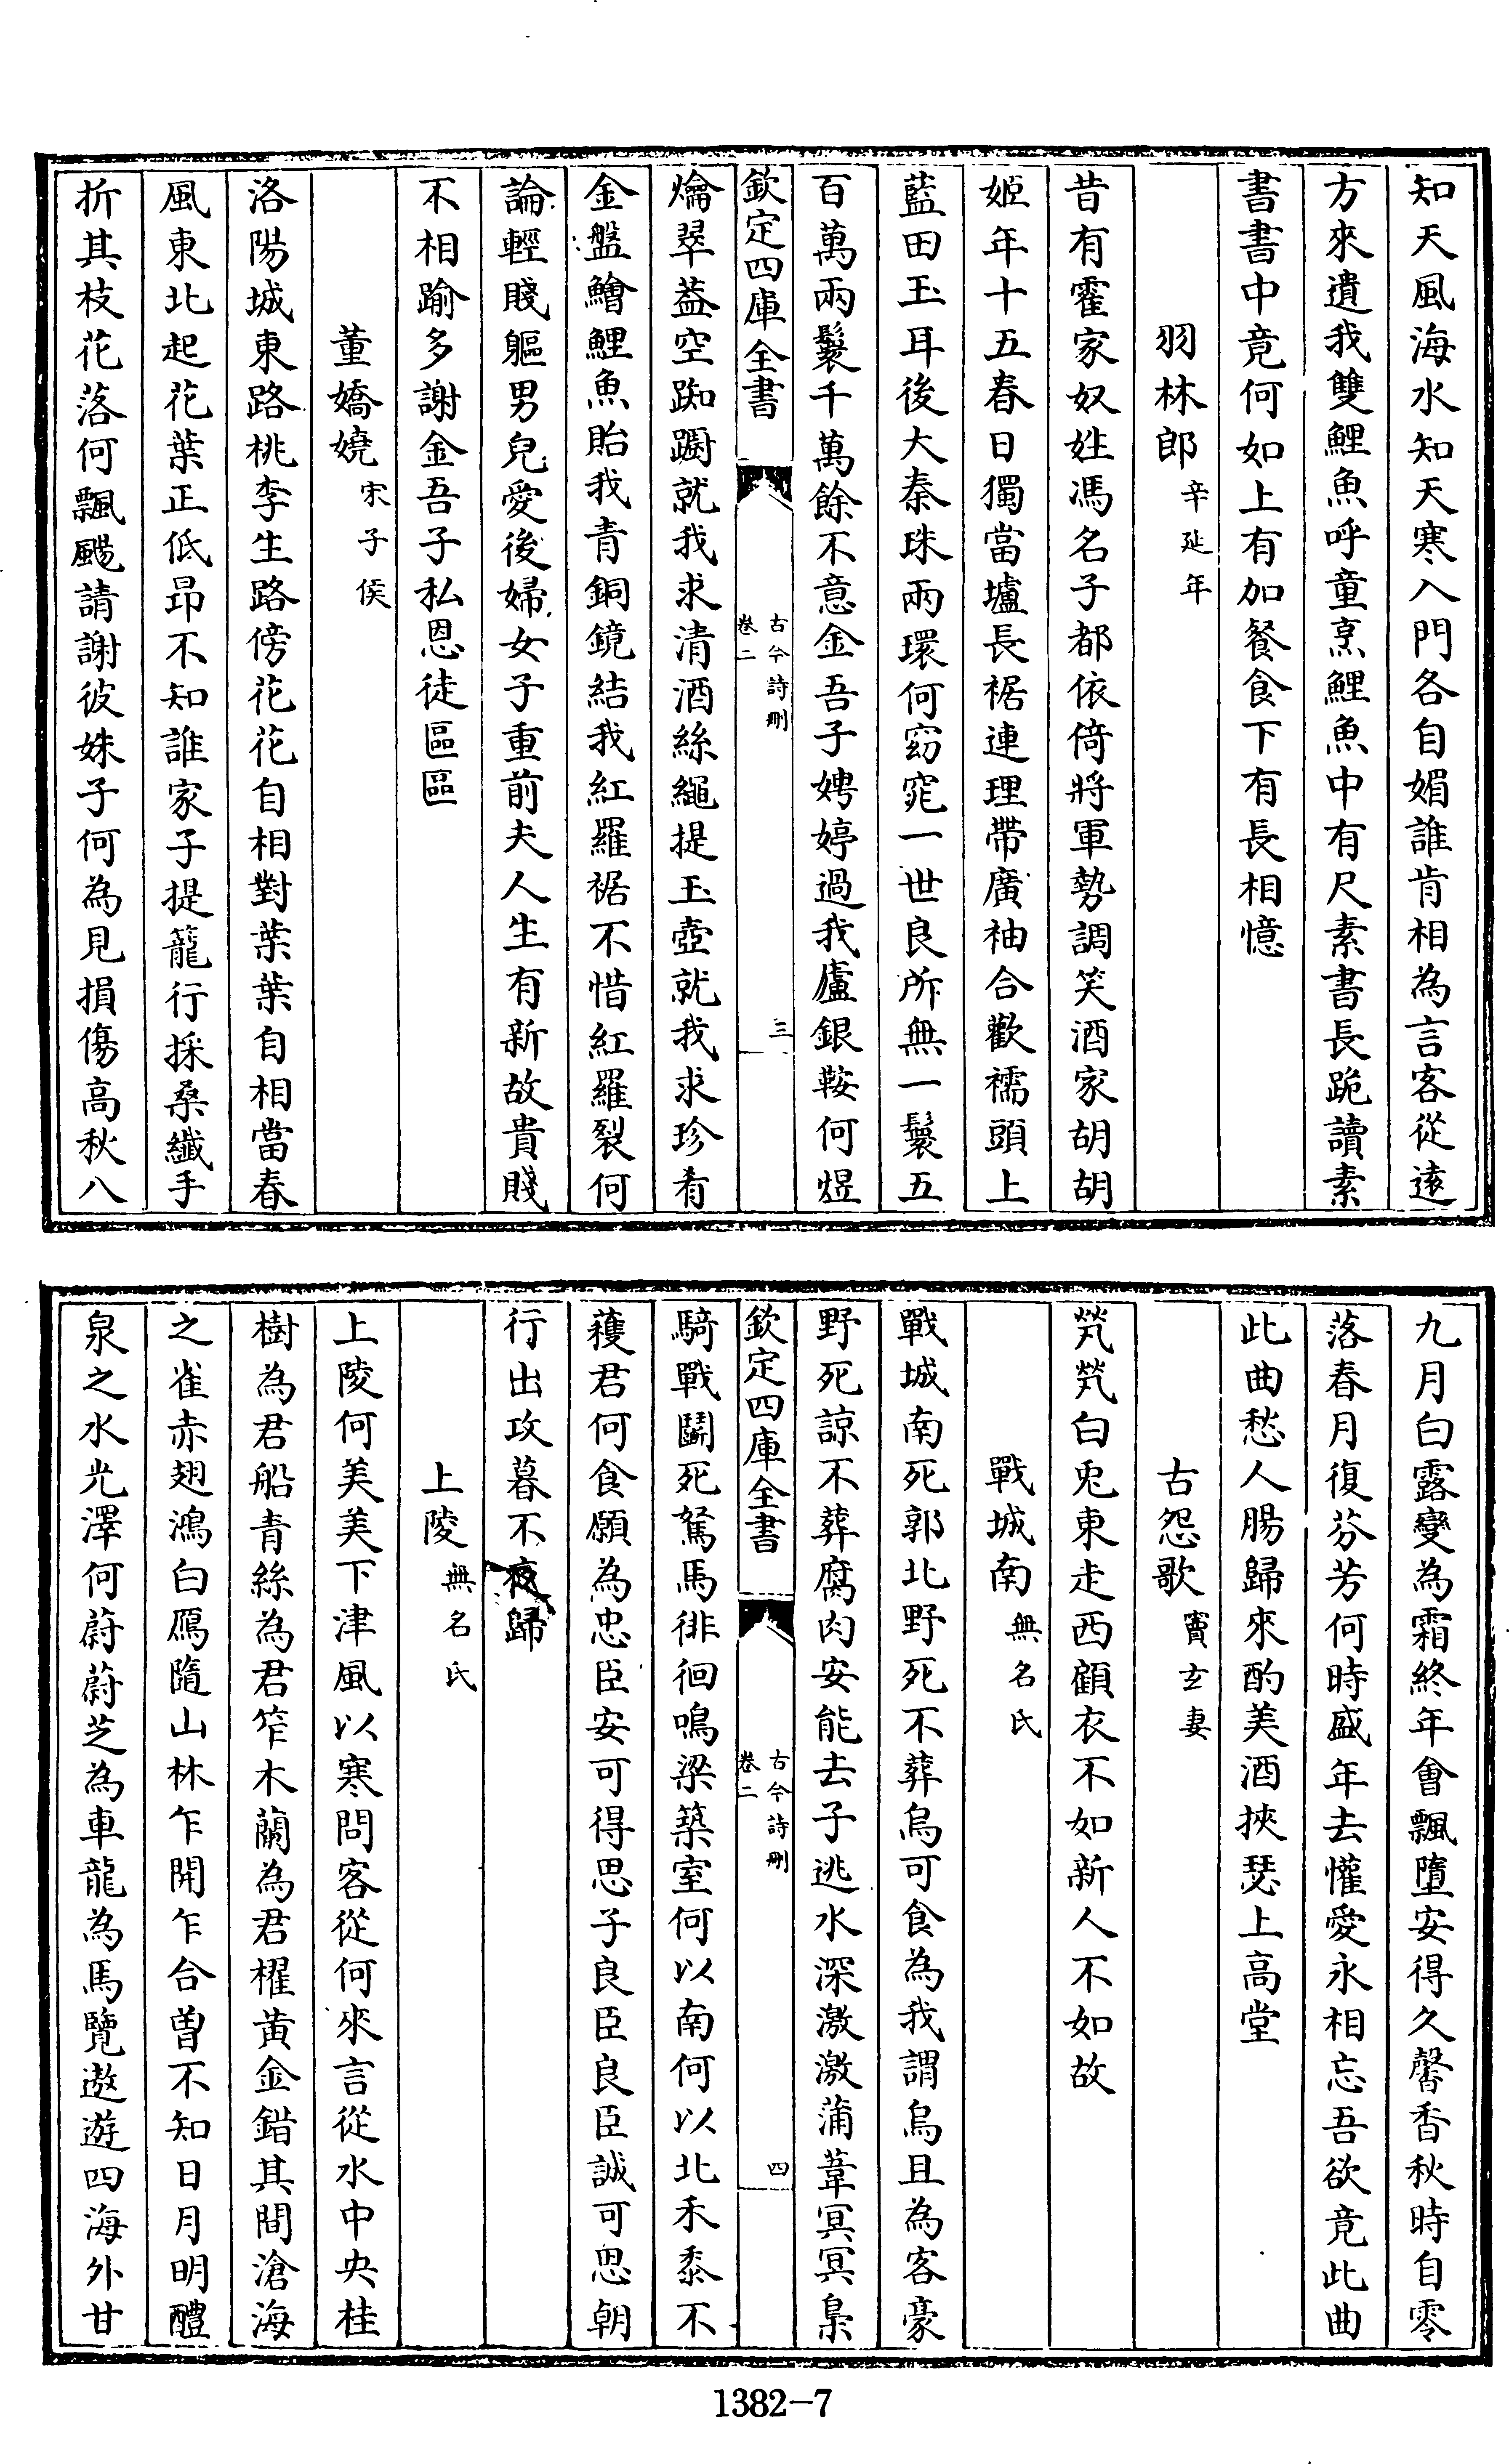 知天風海水知天寒入門各自媚誰肯相為言客從遠
方來遺我雙鯉魚呼童烹鯉魚魚中有尺素書長跪讀素
書書中竟何如上有加餐食下有長相憶
羽林郎辛延年
昔有霍家奴姓馮名子都依倚將軍勢調笑酒家胡胡
姬年十五春日獨當壚長裾連理帶廣袖合歡襦頭上
藍田玉耳後大秦珠兩環何窈窕一世良所無一鬟五
百萬兩鬟千萬餘不意金吾子娉婷過我廬銀鞍何煜
欽定四庫全書
古今詩刪
卷二
三
爚翠葢空踟躕就我求清酒絲繩提玉壺就我求珍肴
金盤鱠鯉魚貽我青銅鏡結我紅羅裾不惜紅羅裂何
論輕賤軀男兒愛後婦女子重前夫人生有新故貴賤
不相踰多謝金吾子私恩徒區區
董嬌嬈宋子侯
洛陽城東路桃李生路傍花花自相對葉葉自相當春
風東北起花葉正低昻不知誰家子提籠行採桑纖手
折其枝花落何飄颺請謝彼姝子何為見損傷高秋八
九月白露變為霜終年會飄墮安得久馨香秋時自零
落春月復芬芳何時盛年去懽愛永相忘吾欲竟此曲
此曲愁人腸歸來酌美酒挾瑟上高堂
古怨歌竇玄妻
煢煢白兎東走西顧衣不如新人不如故
戰城南無名氏
戰城南死郭北野死不葬烏可食為我謂烏且為客豪
野死諒不葬腐肉安能去子逃水深激激蒲葦冥冥梟
欽定四庫全書
古今詩刪
卷二
四
騎戰鬭死駑馬徘徊鳴梁築室何以南何以北禾黍不
穫君何食願為忠臣安可得思子良臣良臣誠可思朝
行出攻暮不夜歸
上陵無名氏
上陵何美美下津風以寒問客從何來言從水中央桂
樹為君船青絲為君笮木蘭為君櫂黃金錯其間滄海
之雀赤翅鴻白鴈隨山林乍開乍合曽不知日月明醴
泉之水光澤何蔚蔚芝為車龍為馬覽遨遊四海外甘
1382-7